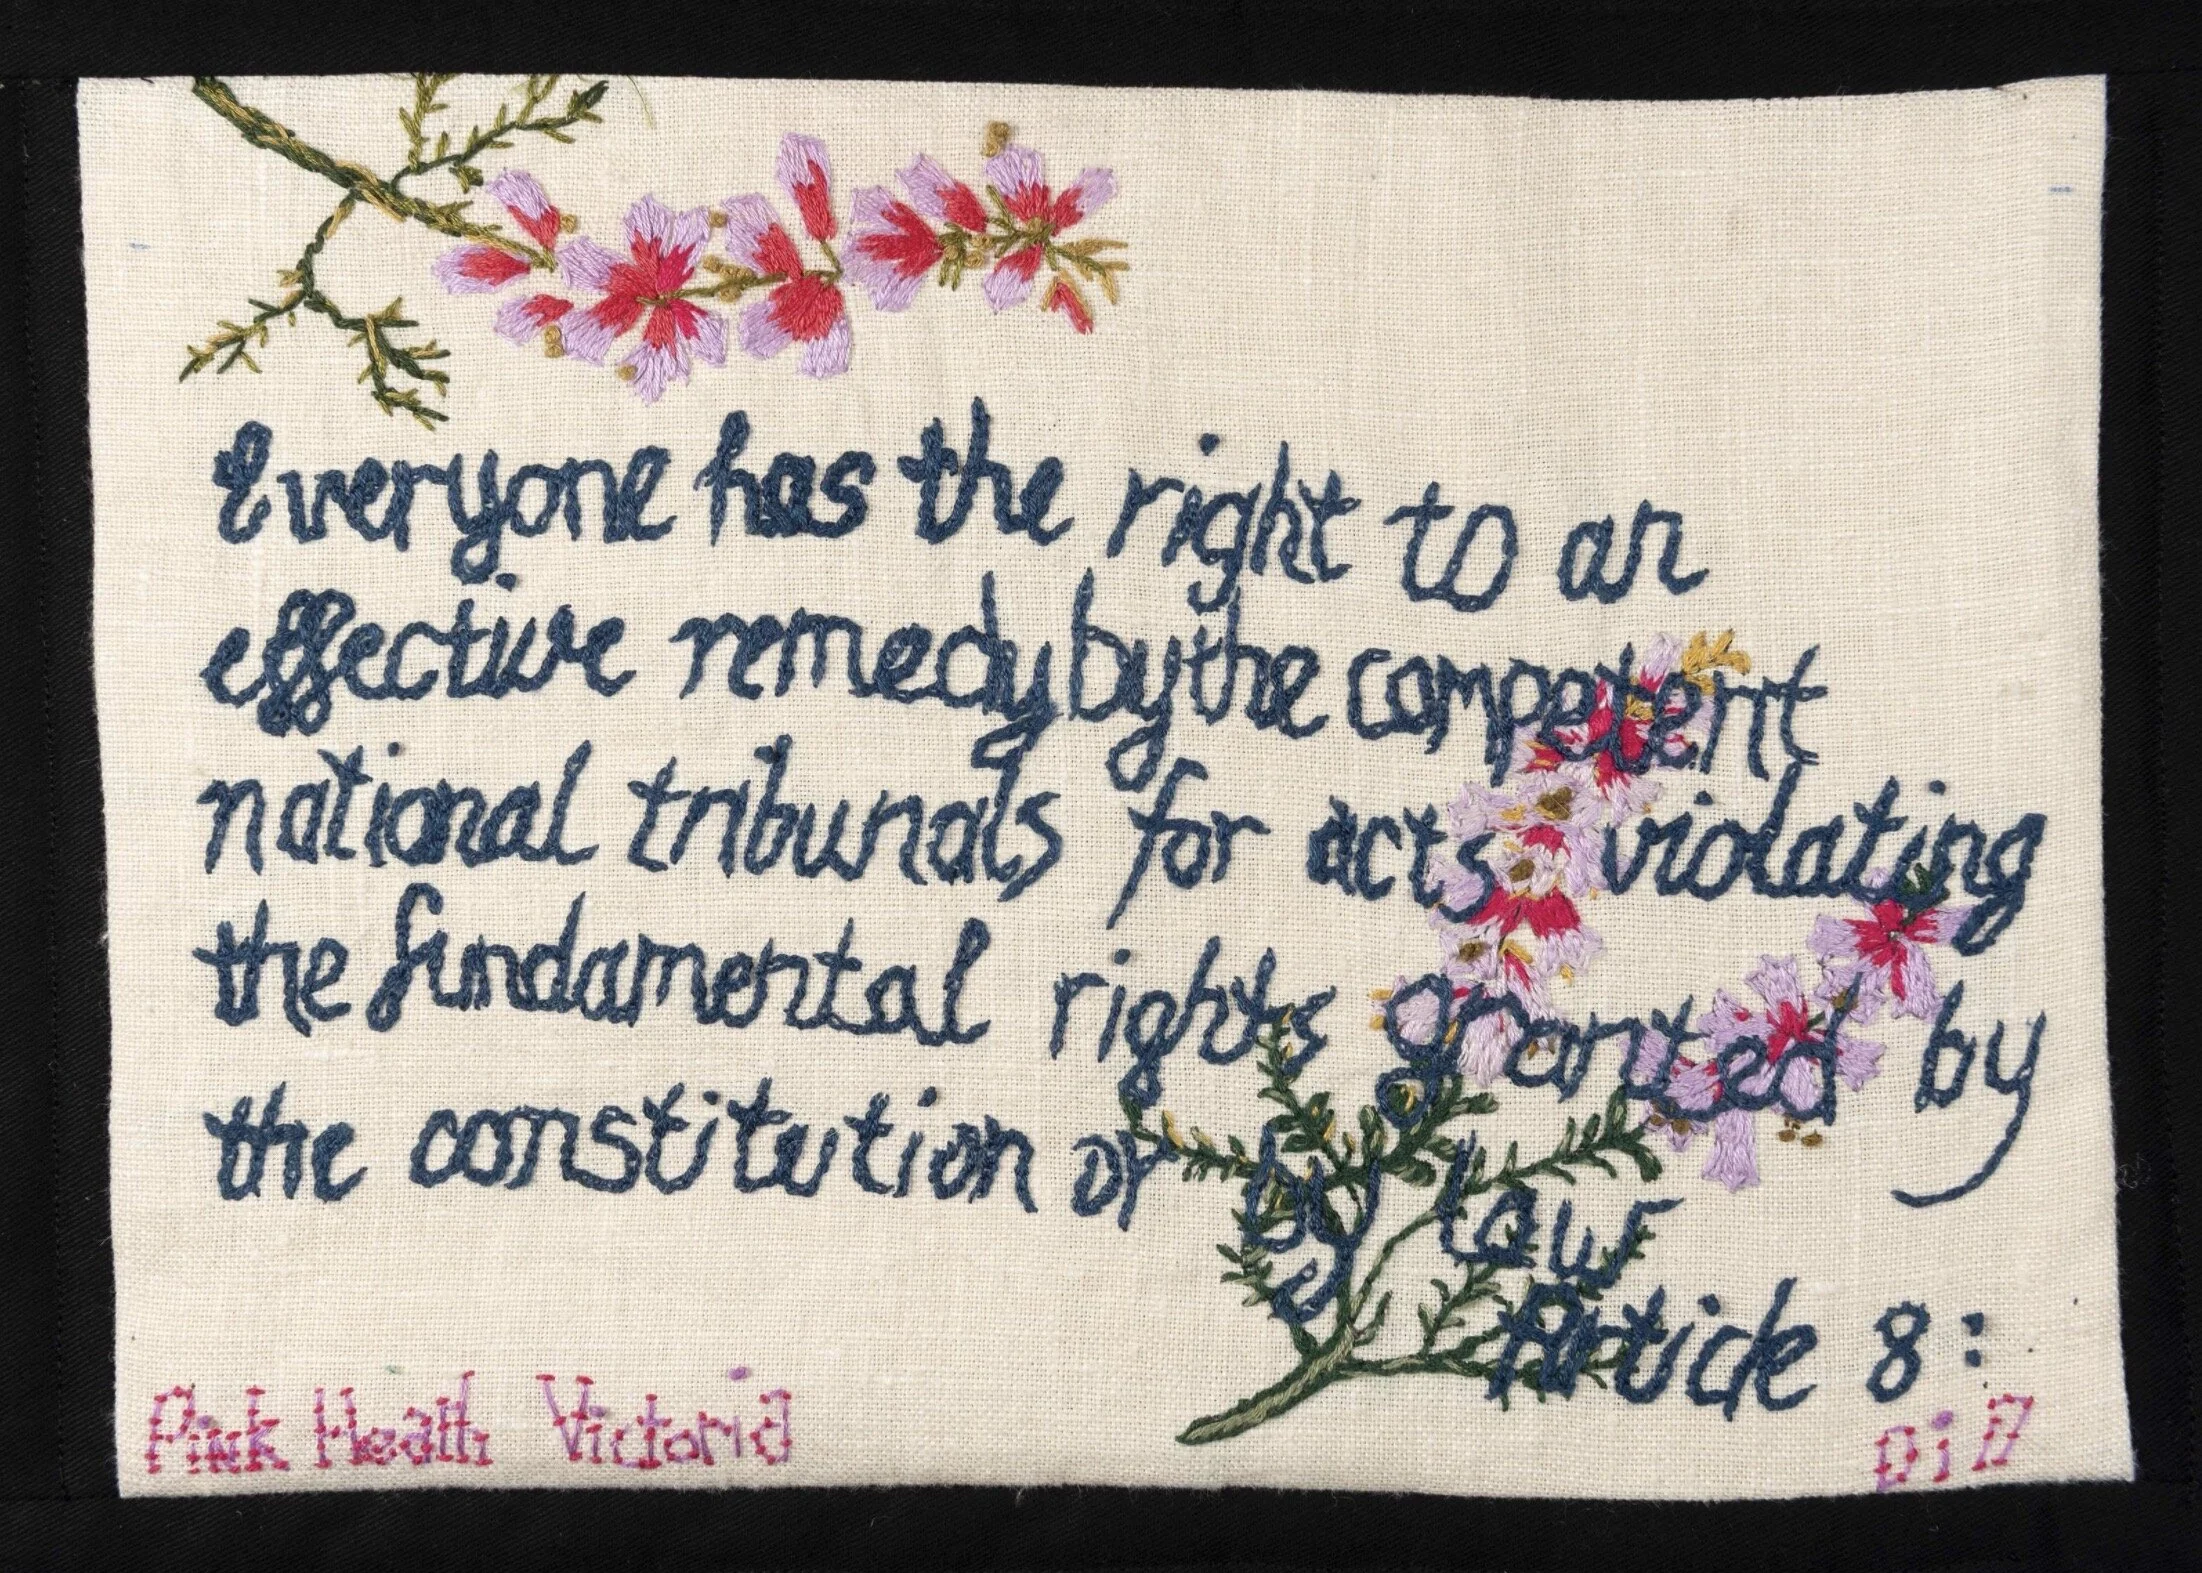 Everyone has the right to an
effective remedy by the competent
national tribunals for acts violating
the fundamental rights granted by
the constitution or by law
Article 8:
Pink Heath Victoria